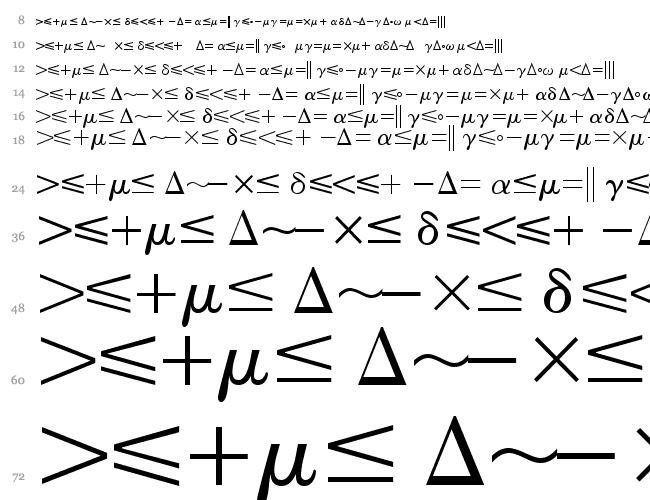 8 >⩽+μ≤ Δ∼−×≤ δ⩽<⩽+ −Δ= α≤μ=|| γ⩽∘−μγ=μ=×μ+ αδΔ∼Δ−γΔ∘ω μ<Δ=|||
10 >⩽+μ≤ Δ∼ ×≤ δ⩽<⩽+ Δ= α≤μ=|| γ⩽∘ μγ=μ=×μ+ αδΔ∼Δ γΔ∘ω μ<Δ=|||
12 >⩽+μ≤ Δ∼−×≤ δ⩽<⩽+ −Δ= α≤μ=|| γ⩽∘−μγ=μ=×μ+ αδΔ∼Δ−γΔ∘ω μ<Δ=|||
14 >⩽+μ≤ Δ∼−×≤ δ⩽<⩽+ −Δ= α≤μ=|| γ⩽∘−μγ=μ=×μ+ αδΔ∼Δ−γΔ∘ω
16 >⩽+μ≤ Δ∼−×≤ δ⩽<⩽+ −Δ= α≤μ=|| γ⩽∘−μγ=μ=×μ+ αδΔ∼Δ
18 >⩽+μ≤ Δ∼−×≤ δ⩽<⩽+ −Δ= α≤μ=|| γ⩽∘−μγ=μ=×μ+
24 >⩽+μ≤ Δ∼−×≤ δ⩽<⩽+ −Δ= α≤μ=|| γ⩽
36 >⩽+μ≤ Δ∼−×≤ δ⩽<⩽+ −Δ
48 >⩽+μ≤ Δ∼−×≤ δ⩽<
60 >⩽+μ≤ Δ∼−×≤
72 >⩽+μ≤ Δ∼−×